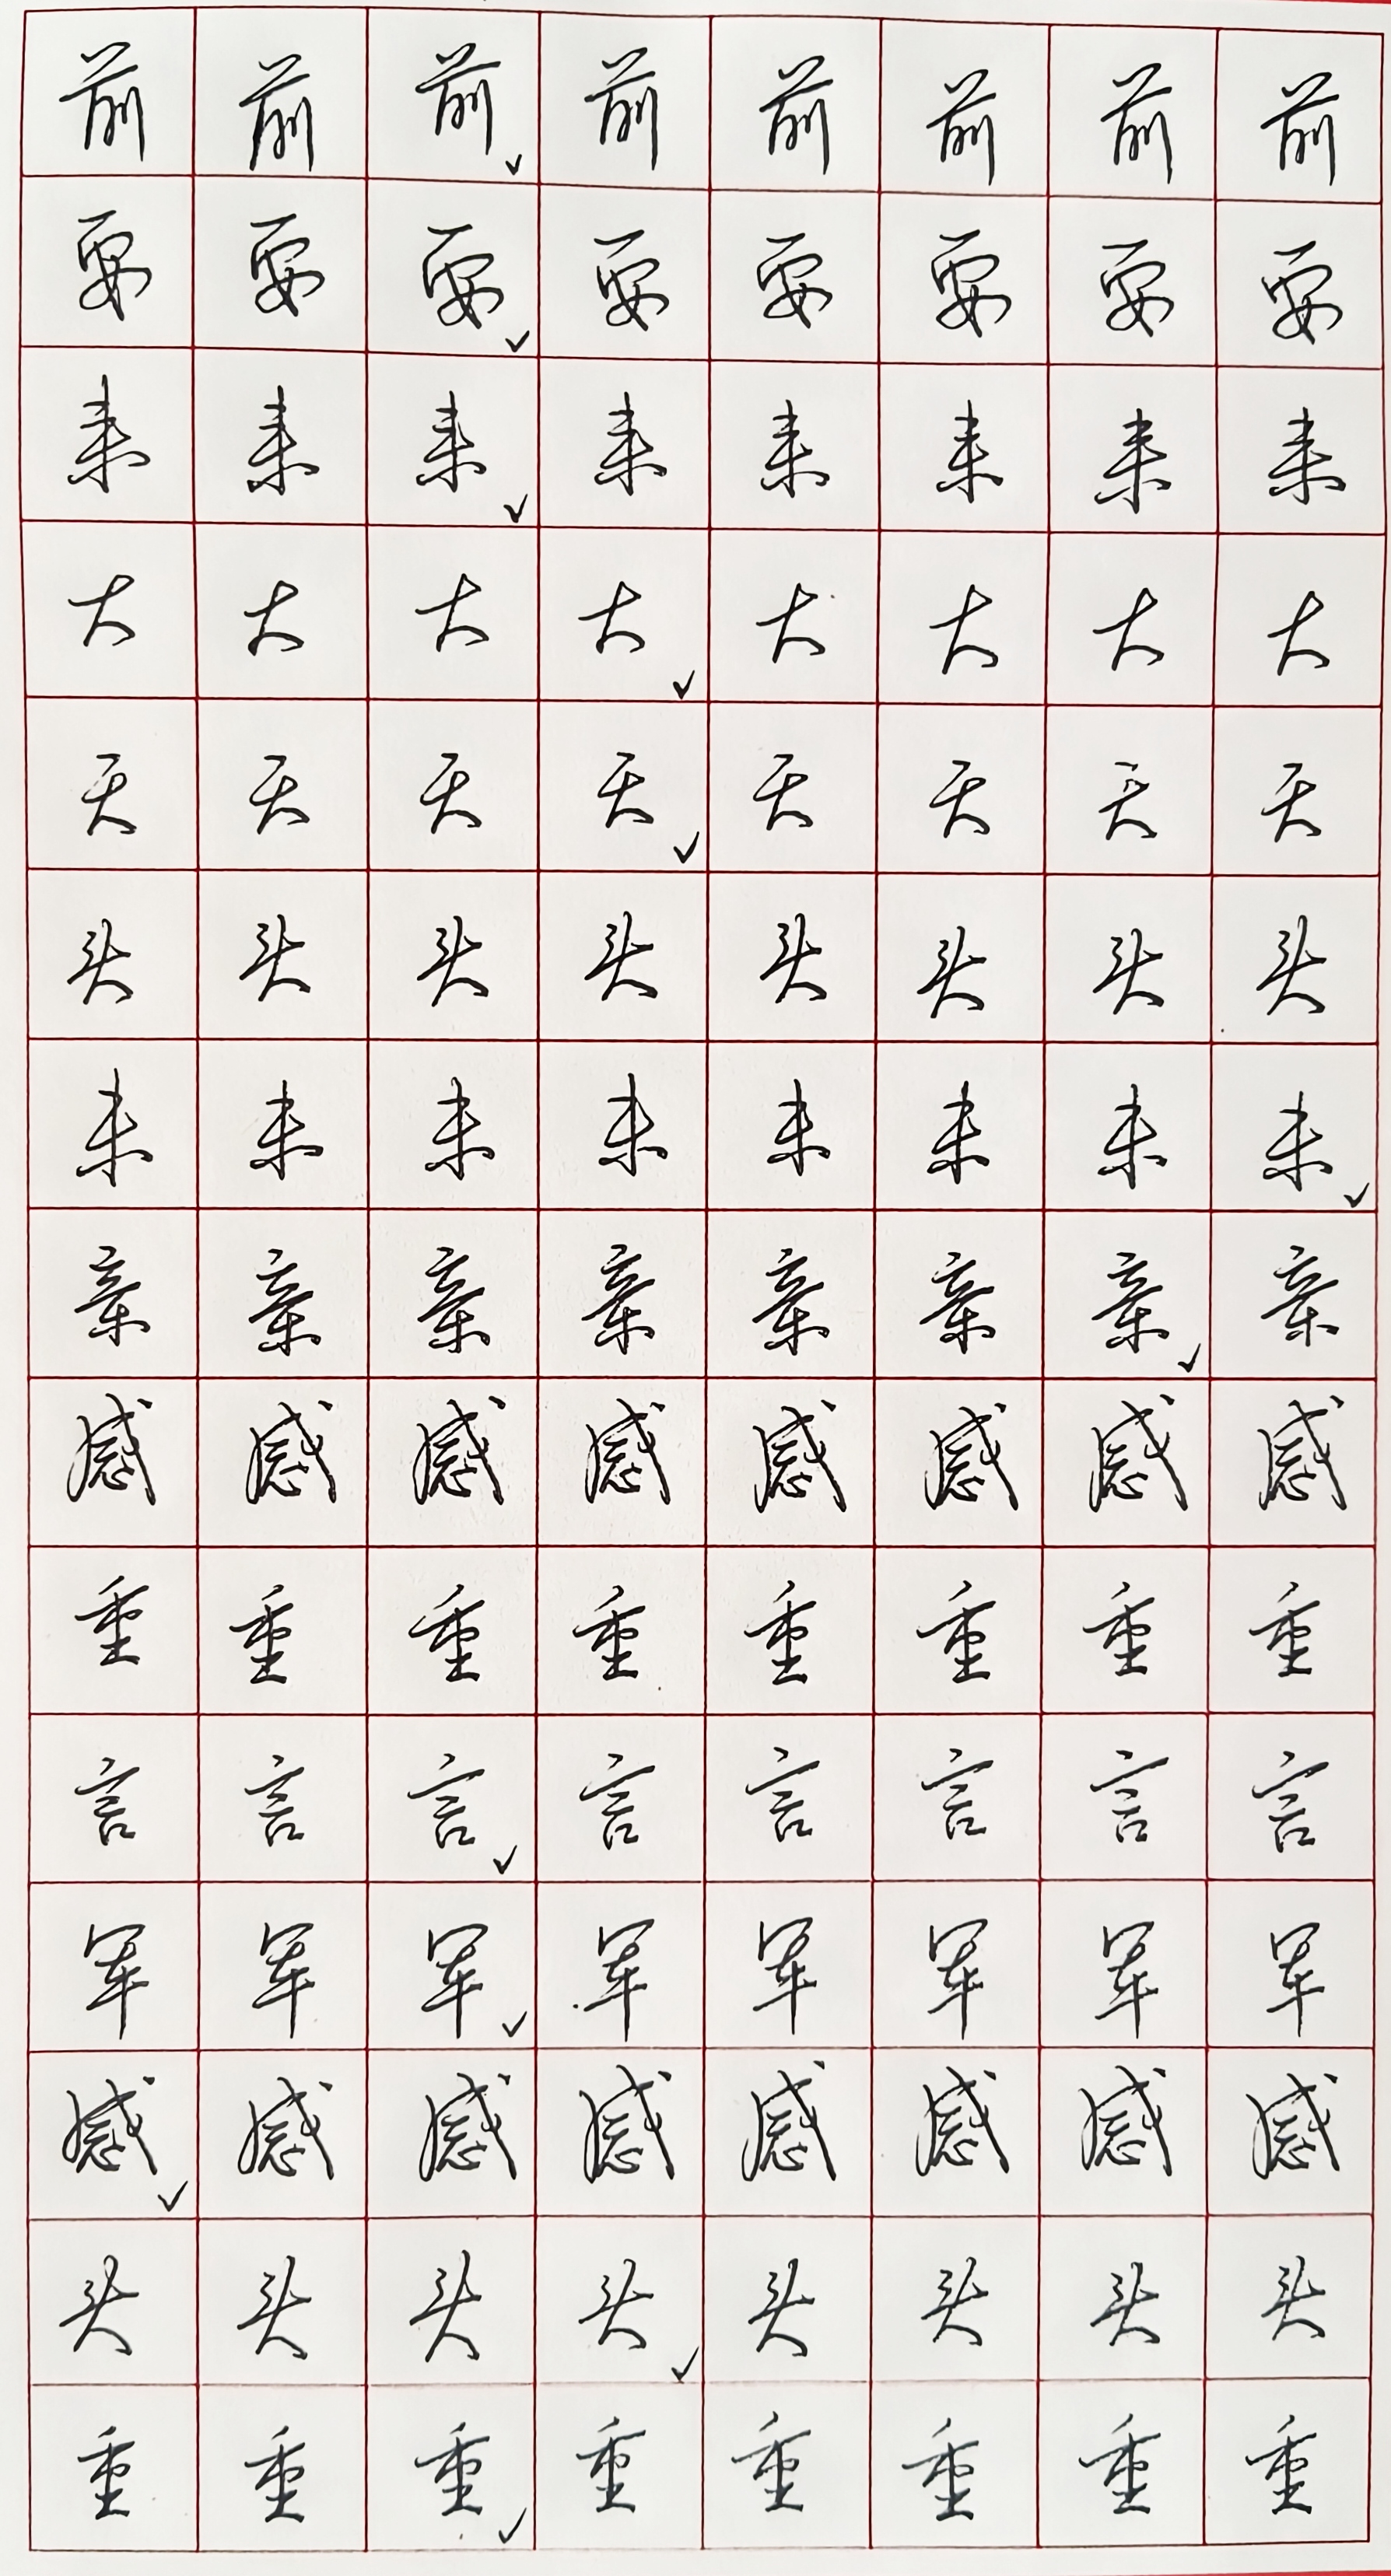 前 前 前 前 前 前 前 前
要 要 要 要 要 要 要 要
来 来 来 来 来 来 来 来
大 大 大 大 大 大 大 大
天 天 天 天 天 天 天 天
头 头 头 头 头 头 头 头
未 未 未 未 未 未 未 未
亲 亲 亲 亲 亲 亲 亲 亲
感 感 感 感 感 感 感 感
重 重 重 重 重 重 重 重
言 言 言 言 言 言 言 言
军 军 军 军 军 军 军 军
感 感 感 感 感 感 感 感
头 头 头 头 头 头 头 头
重 重 重 重 重 重 重 重